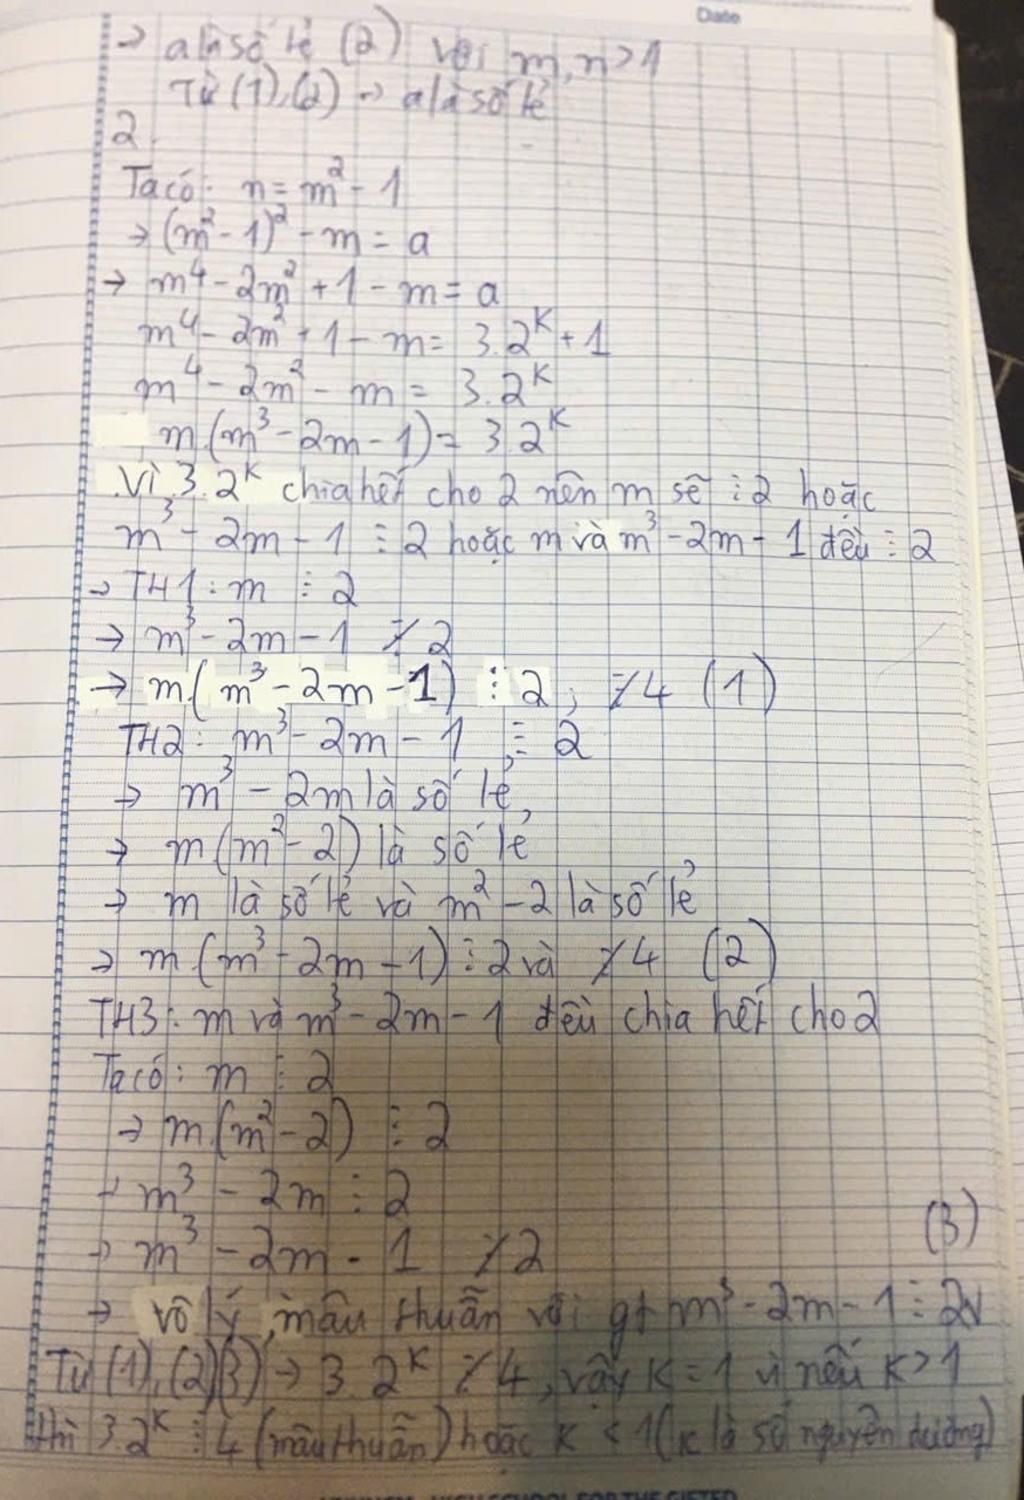 Date
→ a là số lẻ (2) với m, n > 1
Từ (1), (2) → a là số lẻ
2.
Ta có: n = m² - 1
→ (m² - 1)² - m = a
→ m⁴ - 2m² + 1 - m = a
m⁴ - 2m² + 1 - m = 3.2ᴷ + 1
m⁴ - 2m² - m = 3.2ᴷ
m.(m³ - 2m - 1) = 3.2ᴷ
Vì 3.2ᴷ chia hết cho 2 nên m sẽ ⋮ 2 hoặc
m³ - 2m - 1 ⋮ 2 hoặc m và m³ - 2m - 1 đều ⋮ 2
→ TH1: m ⋮ 2
→ m³ - 2m - 1 ⋮̸ 2
→ m.(m³ - 2m - 1) ⋮ 2, ⋮̸ 4 (1)
TH2: m³ - 2m - 1 ⋮ 2
→ m³ - 2m là số lẻ
→ m(m² - 2) là số lẻ
→ m là số lẻ và m² - 2 là số lẻ
→ m.(m³ - 2m - 1) ⋮ 2 và ⋮̸ 4 (2)
TH3: m và m³ - 2m - 1 đều chia hết cho 2
Ta có: m ⋮ 2
→ m.(m² - 2) ⋮ 2
→ m³ - 2m ⋮ 2
→ m³ - 2m - 1 ⋮̸ 2 (3)
→ vô lý, mâu thuẫn với gt m³ - 2m - 1 ⋮ 2
Từ (1), (2)(3) → 3.2ᴷ ⋮̸ 4, vậy K = 1 vì nếu K > 1
thì 3.2ᴷ ⋮ 4 (mâu thuẫn) hoặc K < 1 (K là số nguyên dương)
HIGH SCHOOL FOR THE GIFTED